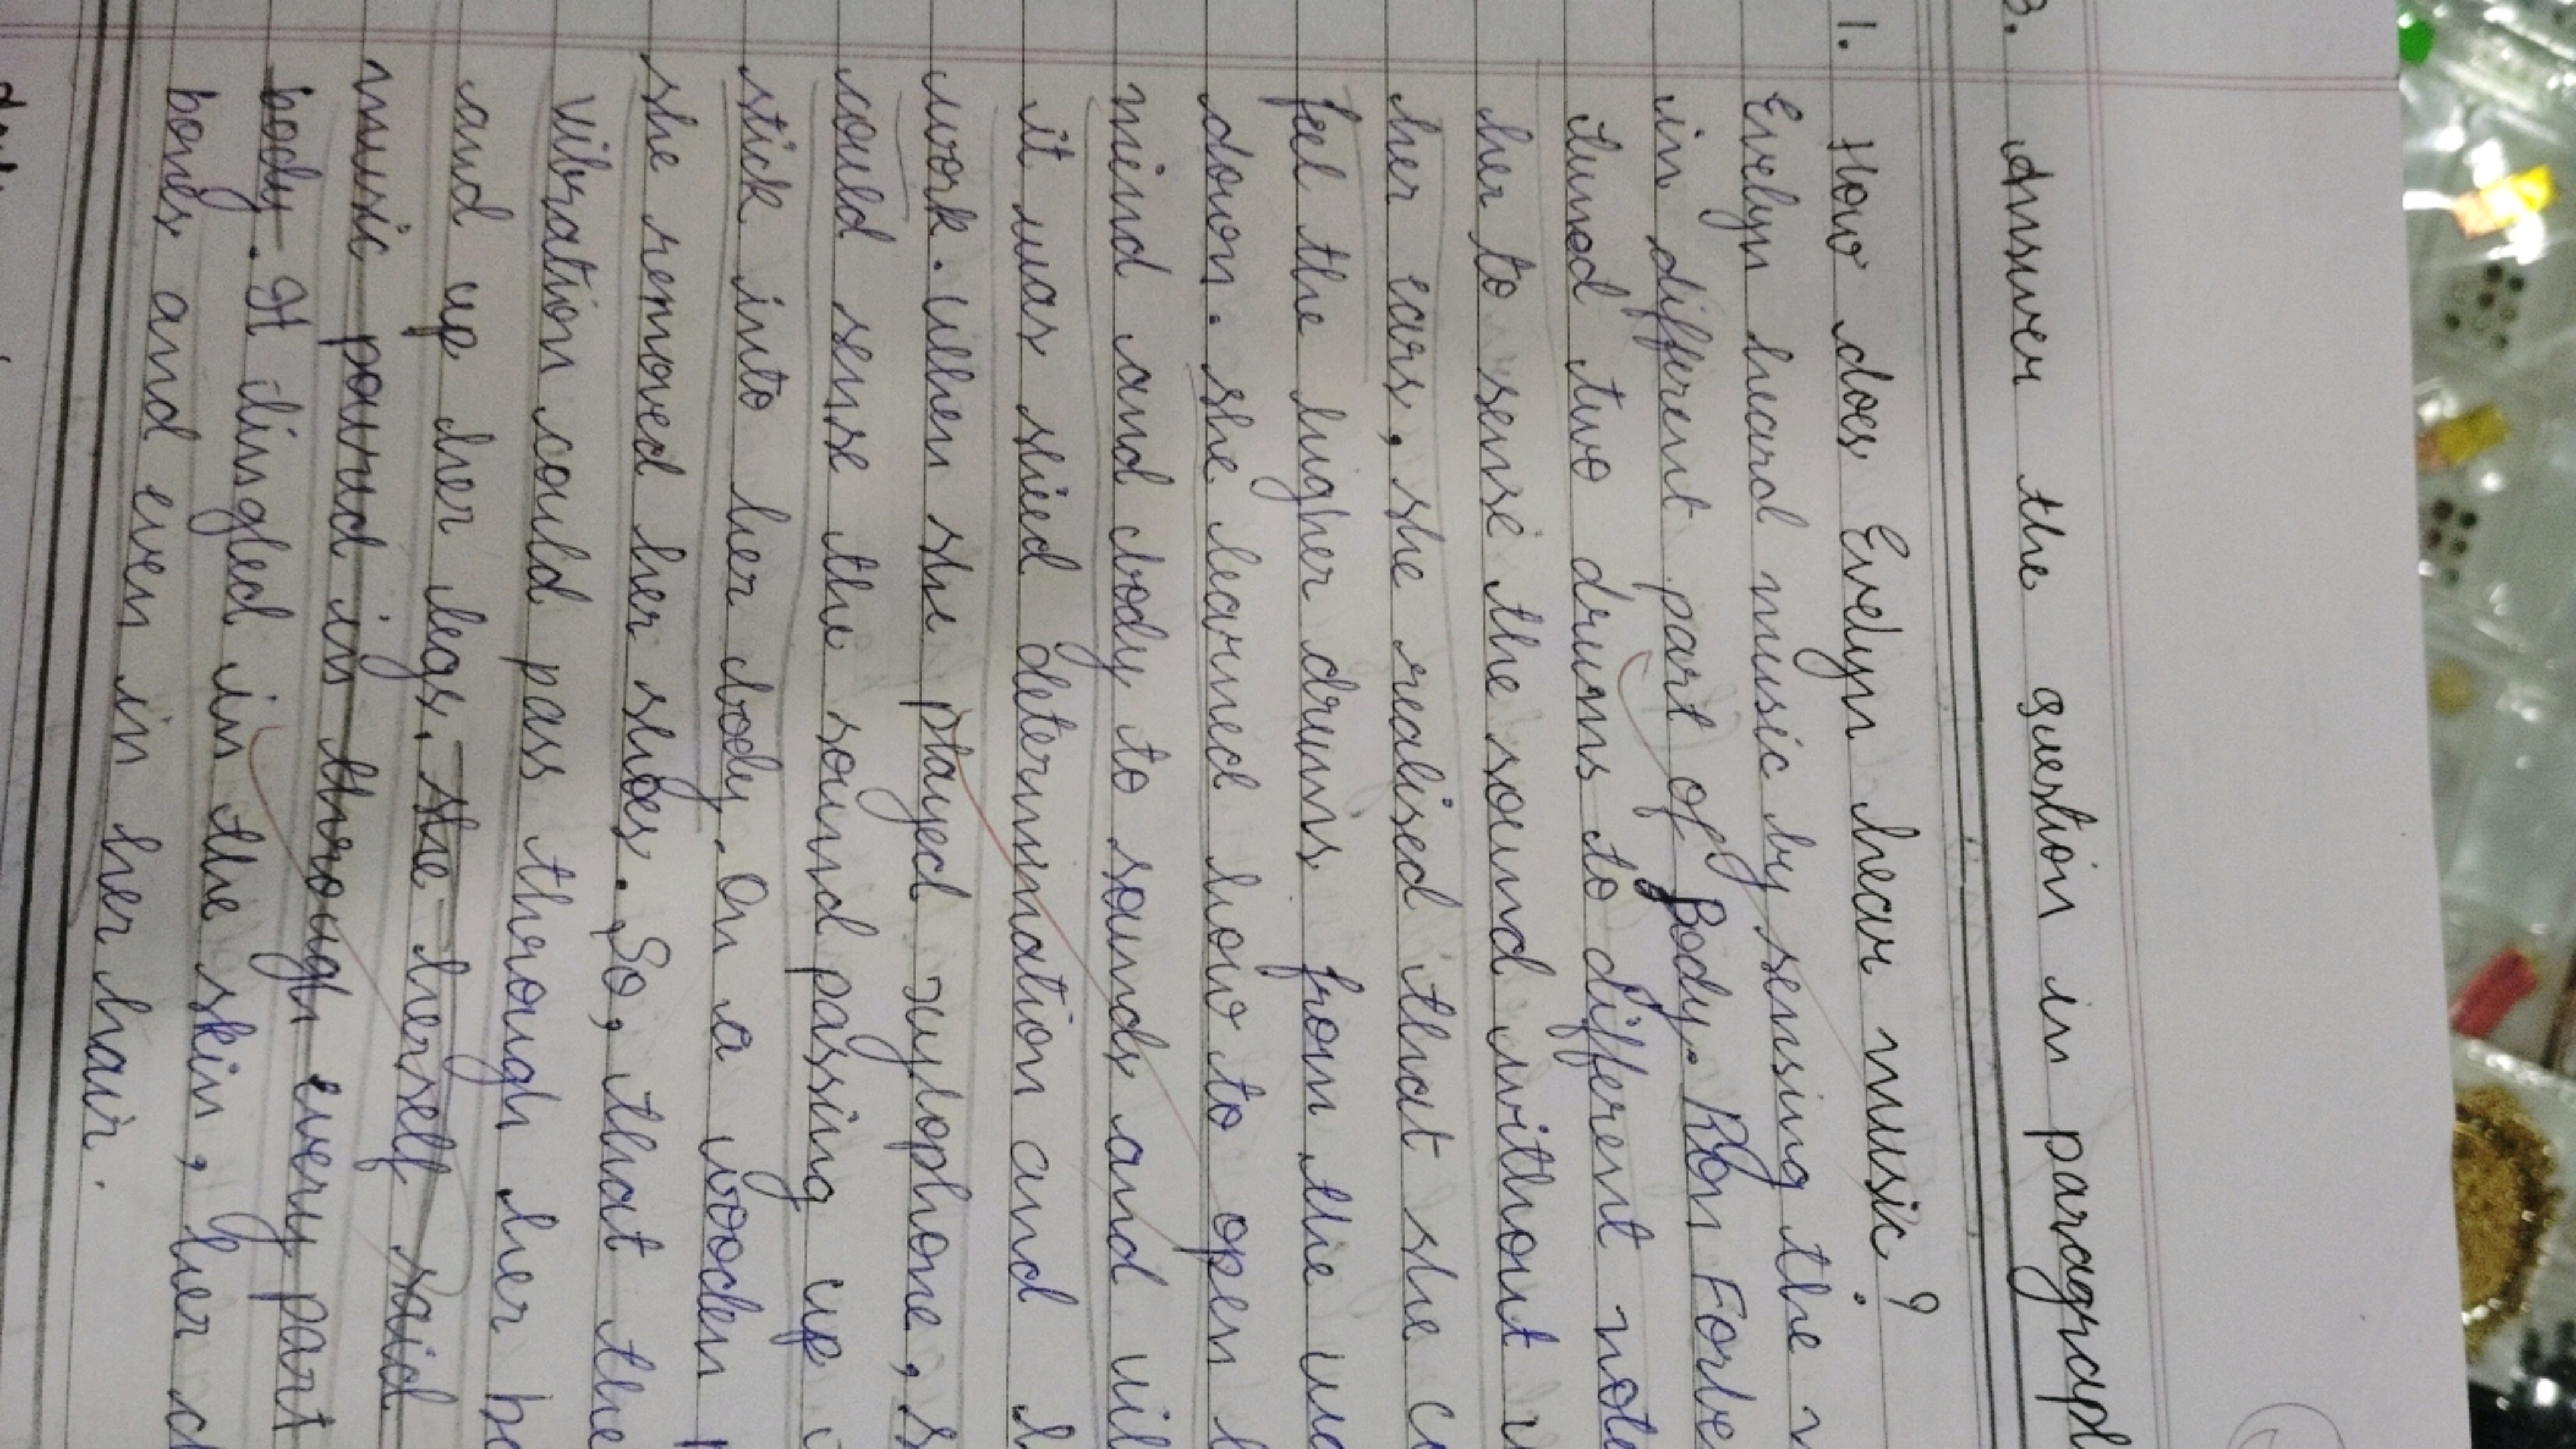 3. Answer the question in paragraph
1. How does Evelyn hear music?
Evelyn heard music by sensing the
in different part of Body. Ron Forbe
tuned two drums to different note
her to sense the sound without
her ears. she realised that she
feel the higher drums from the
down. she learned how to open
mind and body to sounds and
it was shied determination and
work. when she played xylophone,
could sense the sound passing up
stick into her body. on a wooden
she removed her shoes. So, that the
vibration could pass through her
and up her legs. she herself said
music poured in through every part
body. It tingled in the skin, her
bones and even in her hair.